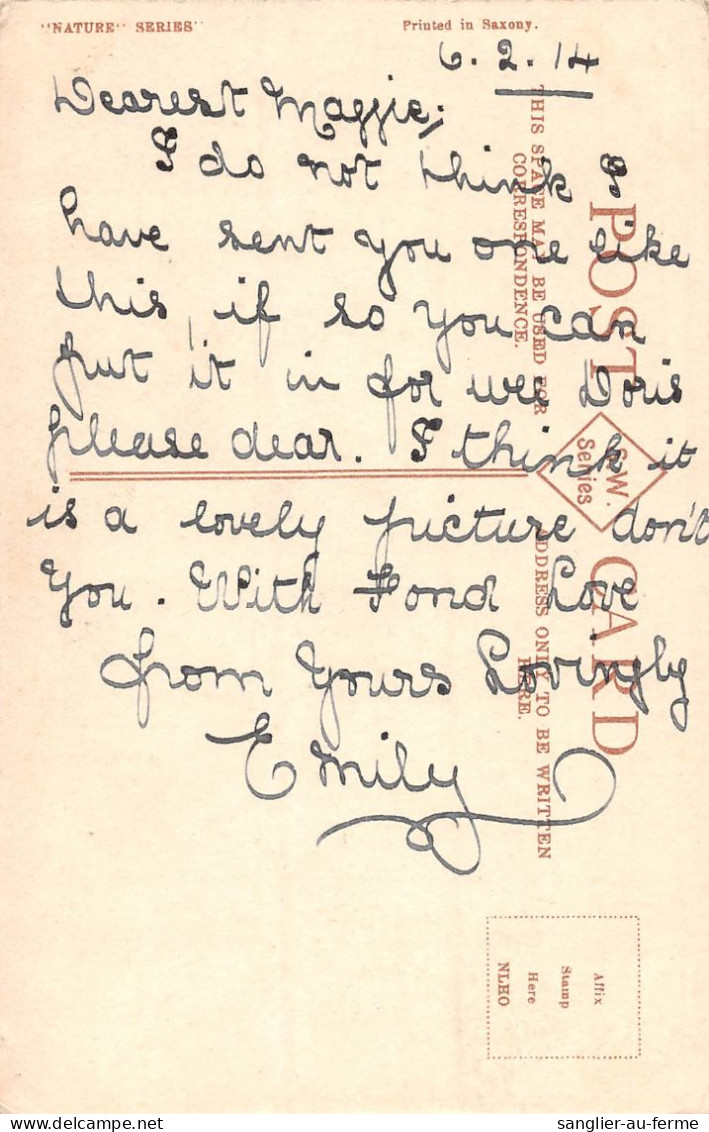 "NATURE" SERIES"
Printed in Saxony.
6.2.14
Dearest Maggie,
I do not think I
have sent you one like
this, if so you can
put it in for wee Doris
please dear. I think it
is a lovely picture don't
you. With Fond Love
from Yours Lovingly
Emily
POST CARD
THIS SPACE MAY BE USED FOR
CORRESPONDENCE.
ADDRESS ONLY TO BE WRITTEN
HERE.
Series
Affix
Stamp
Here
NLHO
sanglier-au-ferme